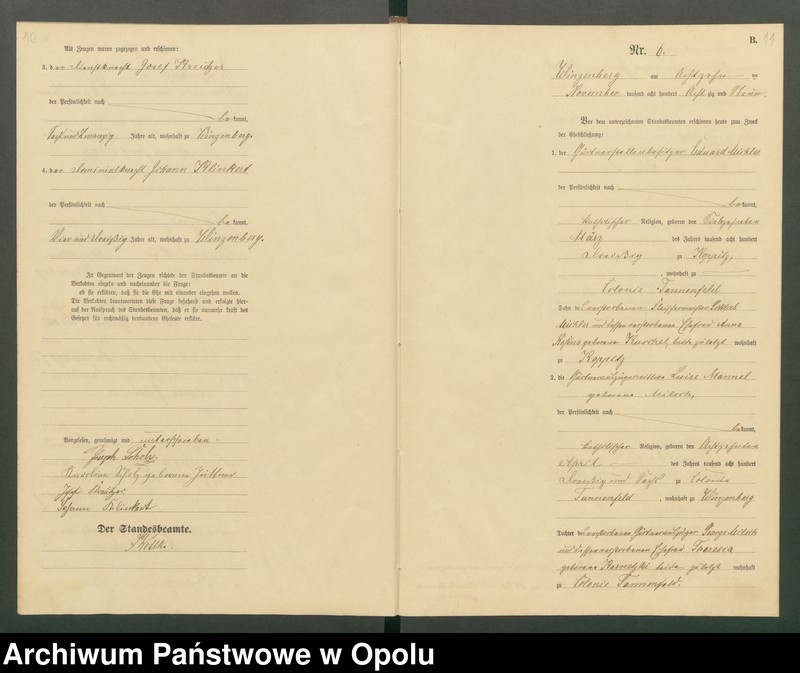 10
Als Zeugen waren zugezogen und erschienen:
3. der Dienstknecht Josef Kreutzer
der Persönlichkeit nach
bekannt,
Jahre alt, wohnhaft zu Winzenberg.
4. der Dominialknecht Johann Klinkert
der Persönlichkeit nach
bekannt,
Vier und dreißig Jahre alt, wohnhaft zu Winzenberg.
In Gegenwart der Zeugen richtete der Standesbeamte an die
Verlobten einzeln und nacheinander die Frage:
ob sie erklären, daß sie die Ehe mit einander eingehen wollen.
Die Verlobten beantworteten diese Frage bejahend und erfolgte hier-
auf der Ausspruch des Standesbeamten, daß er sie nunmehr kraft des
Gesetzes für rechtmäßig verbundene Eheleute erkläre.
Vorgelesen, genehmigt und unterschrieben
Joseph Scholz
Karoline Scholz geborene Hüttner
Josef Kreutzer
Johann Klinkert
Der Standesbeamte.
B.
11
Nr. 6.
Winzenberg am Achtzehn ten
November tausend acht hundert Acht zig und Neun.
Vor dem unterzeichneten Standesbeamten erschienen heute zum Zweck
der Eheschließung:
1. der Gärtnerstellenbesitzer Eduard Michler
der Persönlichkeit nach
bekannt,
katholischer Religion, geboren den
März des Jahres tausend acht hundert
Dreißig zu Koppitz,
, wohnhaft zu
Colonie Tannenfeld
Sohn des verstorbenen Fleischermeister
Michler und dessen verstorbenen Ehefrau Anna
geborene Kuschel, beide zuletzt wohnhaft
zu Koppitz
2. die Gärtnerauszügerwittwe Luise Mannel
geborene Mitsch,
der Persönlichkeit nach
bekannt,
katholischer Religion, geboren den Achtzehnten
April des Jahres tausend acht hundert
Dreißig und zu Colonie
Tannenfeld , wohnhaft zu Winzenberg
Tochter des verstorbenen Gärtnerauszüger George Mitsch
und dessen verstorbenen Ehefrau Theresia
geborene beide zuletzt wohnhaft
zu Colonie Tannenfeld.
Archiwum Państwowe w Opolu